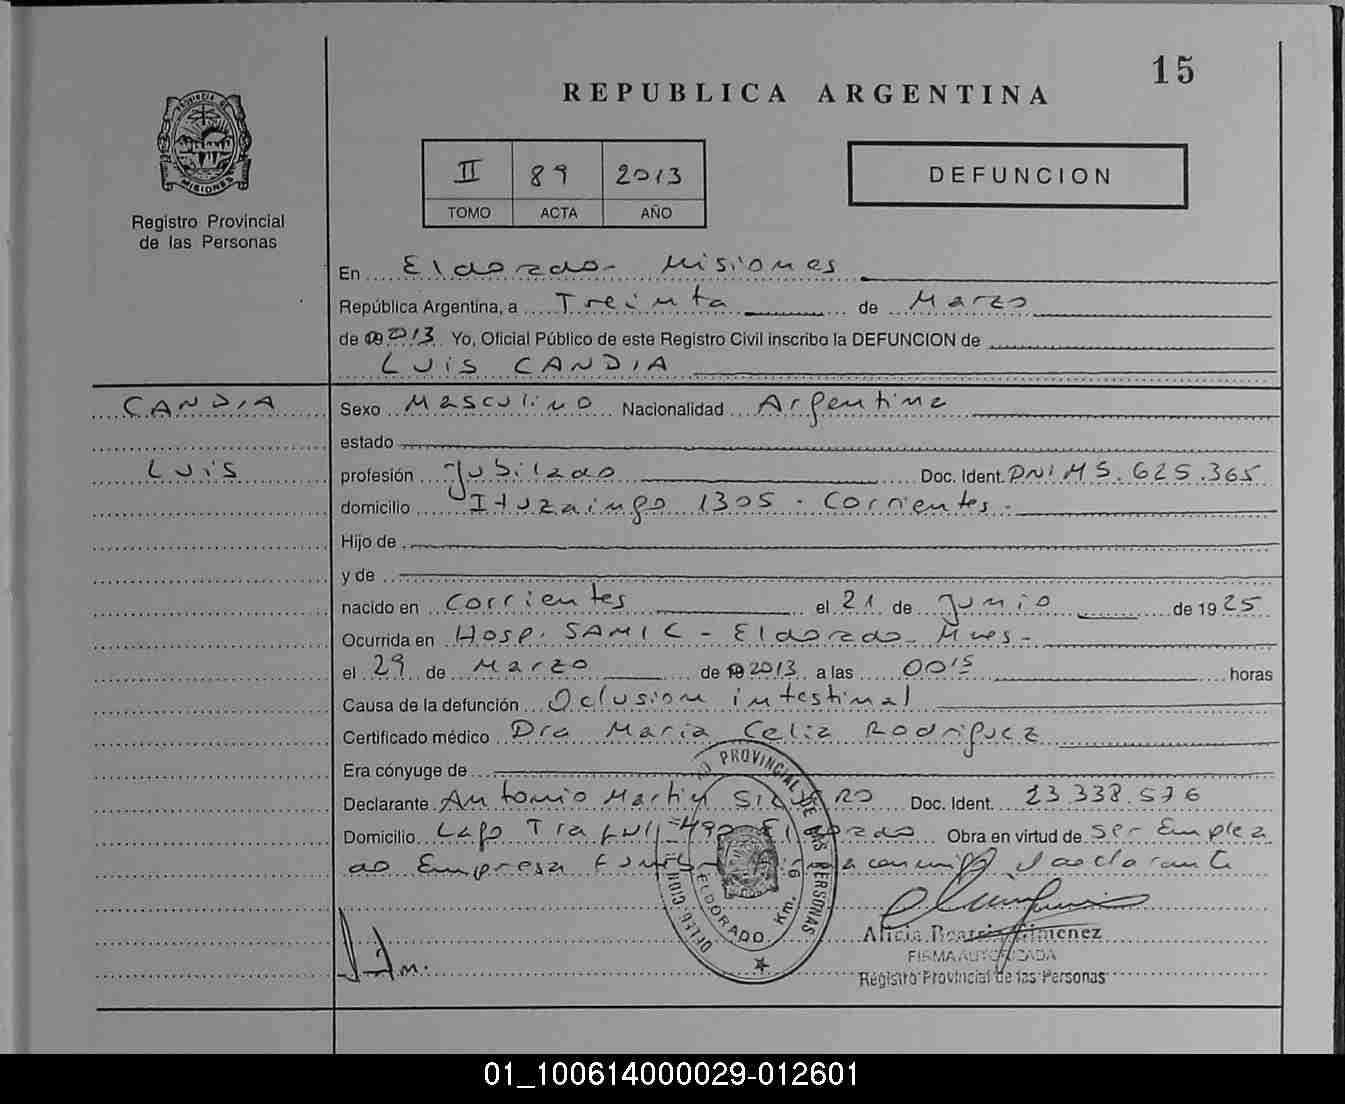 15
REPUBLICA ARGENTINA
PROVINCIA DE
MISIONES
Registro Provincial
de las Personas
II 89 2013
TOMO ACTA AÑO
DEFUNCION
En Eldorado - Misiones
República Argentina, a Treinta de Marzo
de 2013 Yo, Oficial Público de este Registro Civil inscribo la DEFUNCION de
LUIS CANDIA
CANDIA
LUIS
Sexo Masculino Nacionalidad Argentina
estado
profesión Jubilado Doc. Ident. DNI M 5.625.365
domicilio Ituzaingo 1305 - Corrientes -
Hijo de
y de
nacido en Corrientes el 21 de Junio de 1925
Ocurrida en Hosp. SAMIC - Eldorado - Mnes -
el 29 de Marzo de 2013 a las 00'15 horas
Causa de la defunción Oclusion intestinal
Certificado médico Dra Maria Celia Rodriguez
Era cónyuge de
Declarante Antonio Martin Doc. Ident. 23.338.576
Domicilio Lago Eldorado Obra en virtud de ser Emplea
do Empresa el declarante
PROVINCIAL DE LAS PERSONAS
DELEGACION
ELDORADO Km. 9
Alicia Beatriz Gimenez
FIRMA AUTORIZADA
Registro Provincial de las Personas
01_100614000029-012601